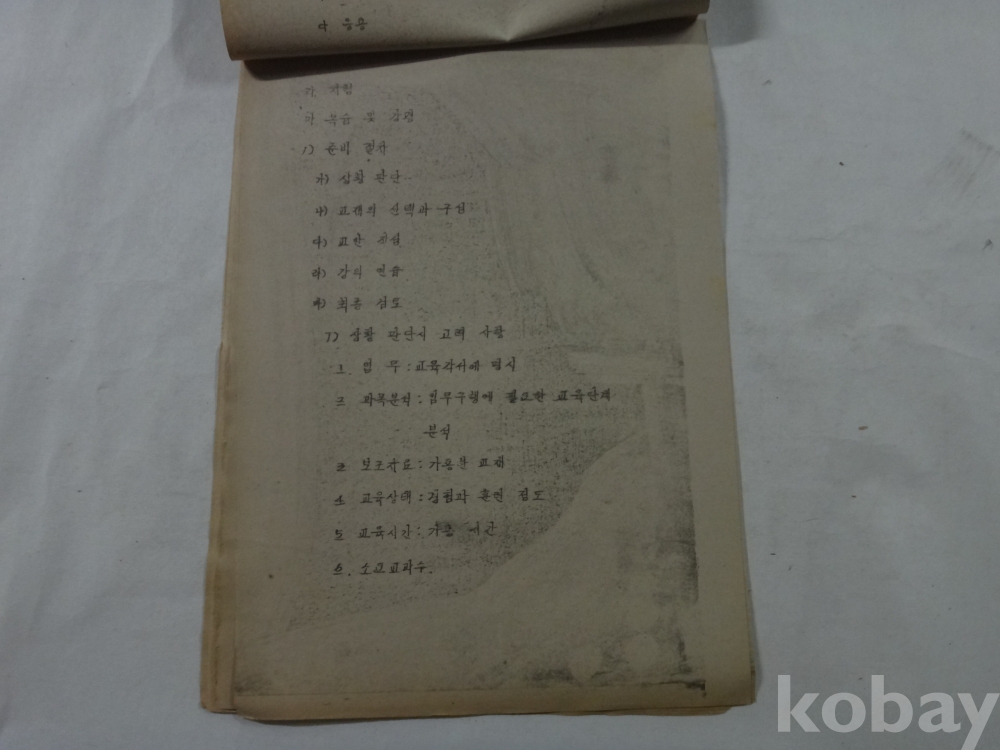 다 응용
라 시험
마 복습 및 강평
1) 준비 절차
가) 상황 판단
나) 교재의 선택과 구성
다) 교안
라) 강의 연습
마) 최종 검토
ㄱ) 상황 판단시 고려 사항
1. 임무 : 교육각서에 명시
2 과목분석 : 임무수행에 필요한 교육단계
분석
3 보조자료 : 가용한 교재
4 교육상태 : 경험과 훈련 정도
5 교육시간 : 가용 시간
6. 소요교관수.
kobay